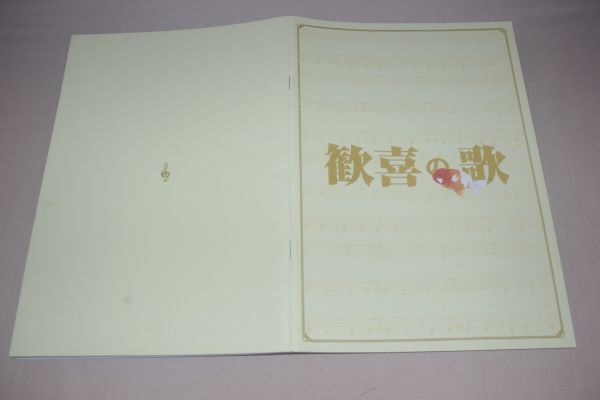 歓喜の歌